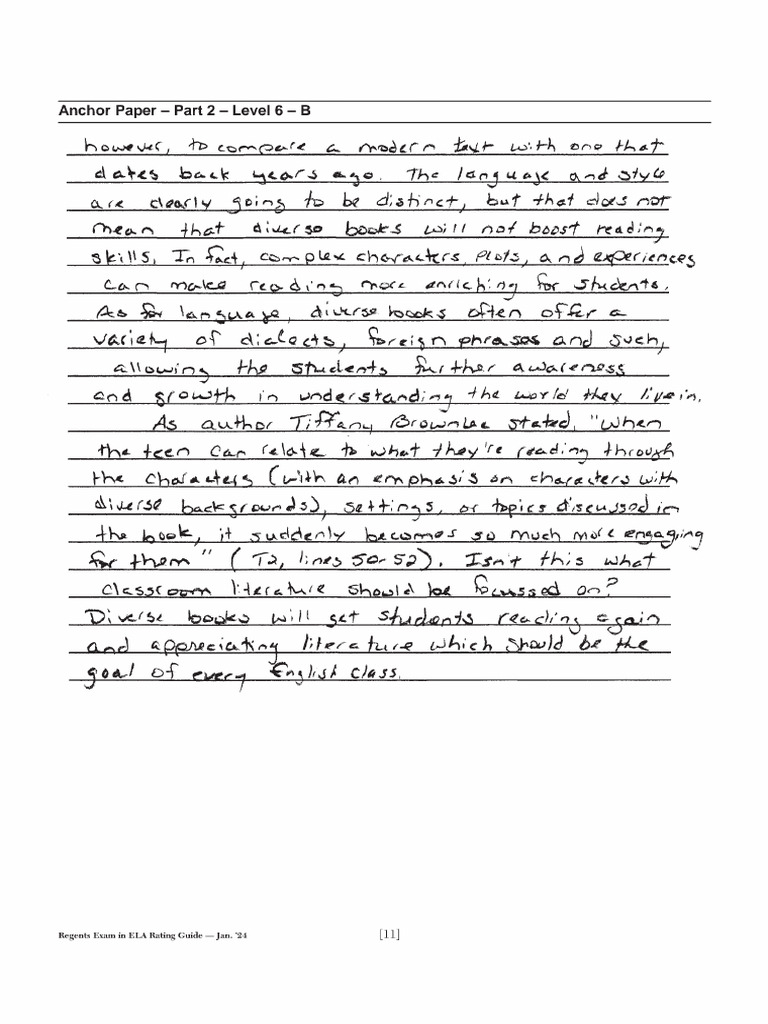 Anchor Paper – Part 2 – Level 6 – B
however, to compare a modern text with one that
dates back years ago. The language and style
are clearly going to be distinct, but that does not
mean that diverse books will not boost reading
skills. In fact, complex characters, plots, and experiences
can make reading more enriching for students.
As for language, diverse books often offer a
variety of dialects, foreign phrases and such,
allowing the students further awareness
and growth in understanding the world they live in.
As author Tiffany Brownlee stated, "When
the teen can relate to what they're reading through
the characters (with an emphasis on characters with
diverse backgrounds), settings, or topics discussed in
the book, it suddenly becomes so much more engaging
for them" (T2, lines 50-52). Isn't this what
classroom literature should be focussed on?
Diverse books will get students reading again
and appreciating literature which should be the
goal of every English class.
Regents Exam in ELA Rating Guide — Jan. '24
[11]